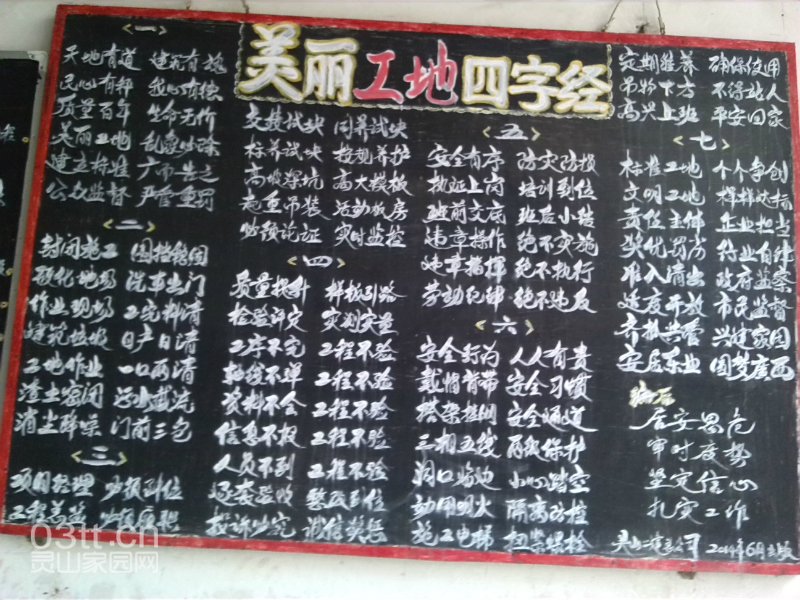 美丽工地四字经
<一>
天地有道 建筑有规
民心有秤 我心有德
质量百年 生命无价
美丽工地 乱象必除
建立标准 广而告之
公众监督 严管重罚
<二>
封闭施工 围挡稳固
硬化地场 洗车出门
作业现场 工完料清
建筑垃圾 日产日清
工地作业 一口两清
渣土密闭 污水截流
消尘降噪 门前三包
<三>
项目经理 必须到位
必须履职
交接试块 同养试块
标养试块 按规养护
高坡深坑 高大模板
起重吊装 活动板房
必须论证 实时监控
<四>
质量提升 样板引路
检验评定 实测实量
工序不完 工程不验
轴线不弹 工程不验
资料不全 工程不验
信息不报 工程不验
人员不到 工程不验
逐套监收 整改到位
投诉必究 诚信奖惩
<五>
安全有序 防灾防损
执证上岗 培训到位
班前交底 班后小结
违章操作 绝不实施
违章指挥 绝不执行
劳动纪律 绝不违反
<六>
安全行为 人人有责
戴帽背带 安全习惯
搭架挂网 安全通道
三相五线 两级保护
洞口临边 小心踏空
动用明火 隔离防控
施工电梯 扭紧螺栓
定期维养 确保使用
吊物下方 不得站人
高兴上班 平安回家
<七>
标准工地 个个争创
文明工地 样样达标
责任主体 企业担当
奖优罚劣 行业自律
准入清出 政府监察
适度开放 市民监督
齐抓共管 兴建家园
安居乐业 圆梦广西
编后
居安思危
审时度势
坚定信心
扎实工作
灵山二建公司 2014年6月
03tt.cn
灵山家园网